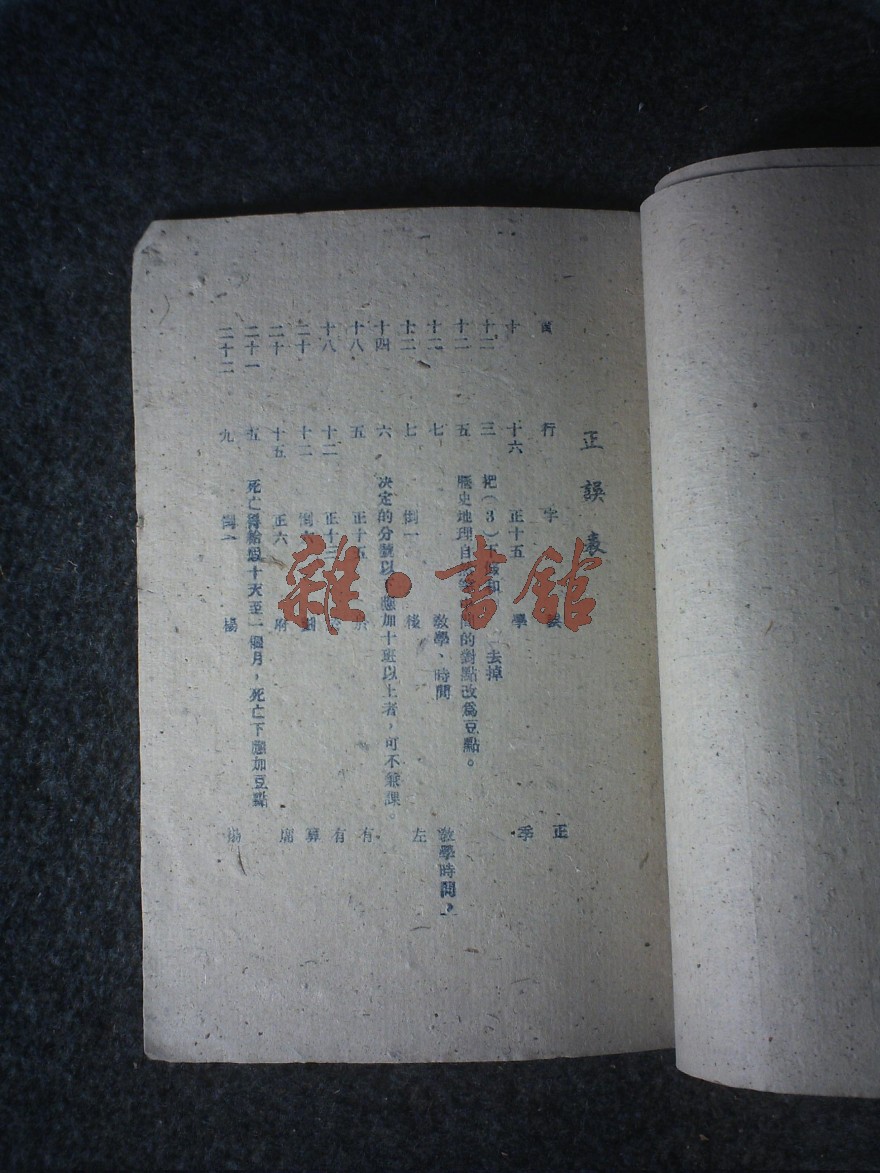 正誤表
頁 行 字 誤 正
十 十六 正十五 學 季
十二 三 把(3) 去掉
十二 五 歷史地理自 間的對點改為豆點。
十二 七 教學、時間 教學時間、
十二 七 倒一 左
十四 六 决定的分號以 應加十班以上者,可不兼課。
十八 五 正十五 有
十八 十二 正十三 有
二十 十二 倒 劃 算
二十 十五 正六
二十一 五 死亡得給假十天至一個月,死亡下應加豆點
二十二 九 倒一
雜·書館